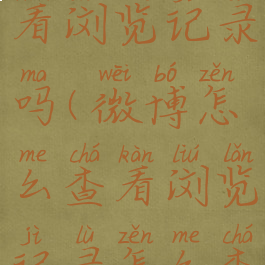 看浏览记录
ma wēi bó zěn
吗(微博怎
me chá kàn liú lǎn
么查看浏览
jì lù zěn me chá
记录怎么查